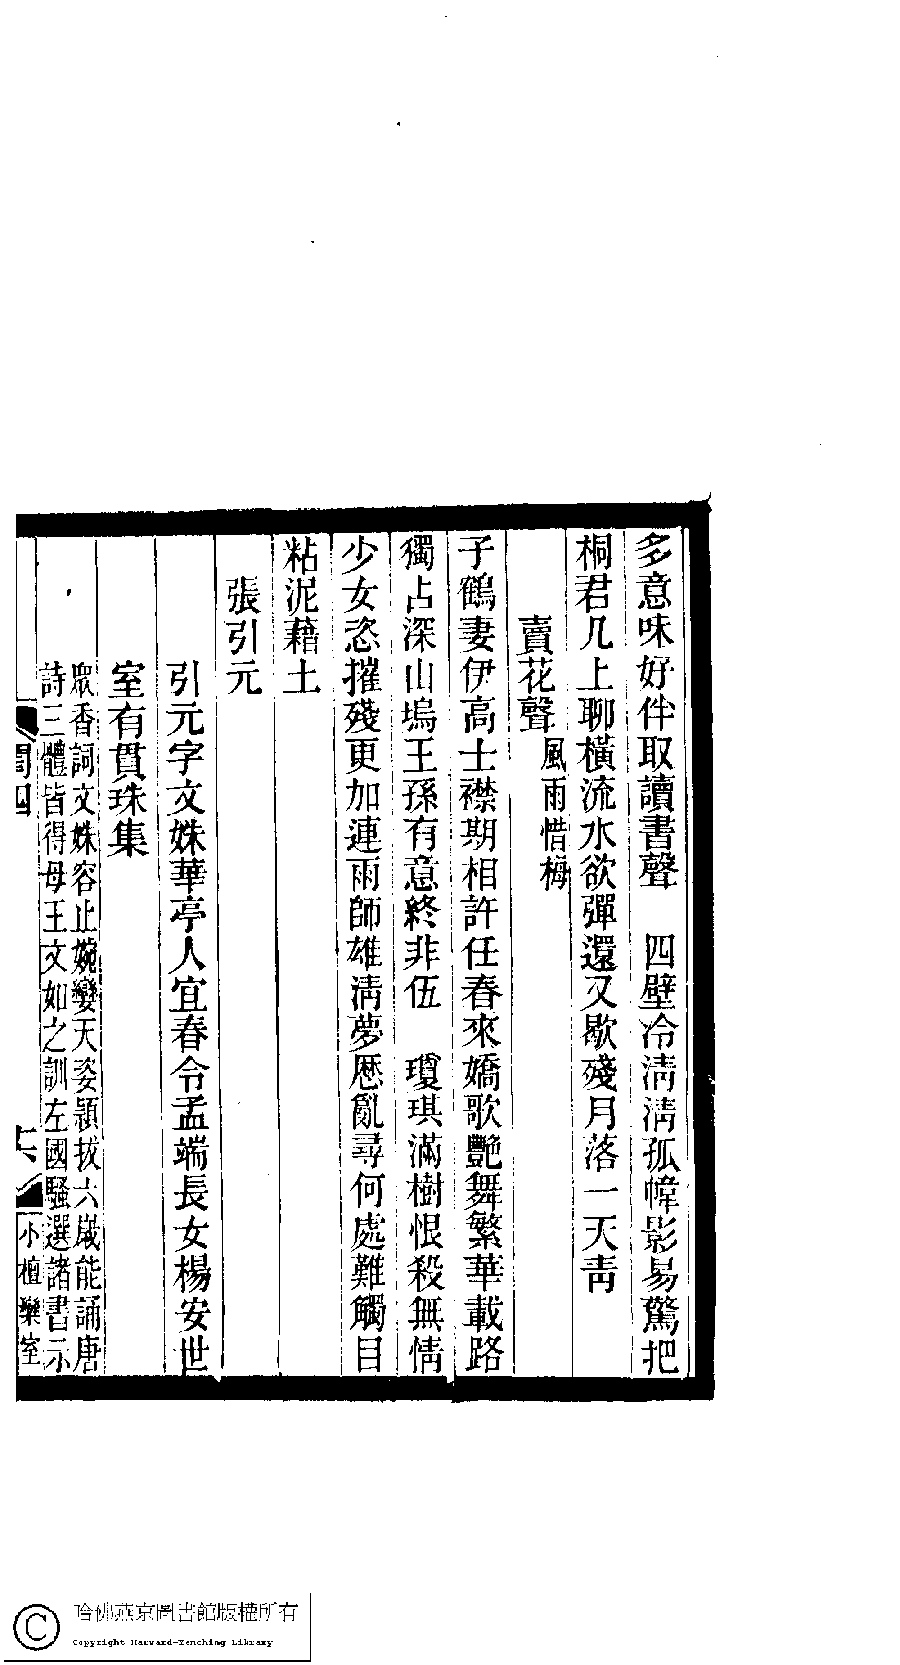 多意味好伴取讀書聲　四壁冷清清孤幃影易驚把
桐君几上聊橫流水欲彈還又歇殘月落一天青
賣花聲 風雨惜梅
子鶴妻伊高士襟期相許任春來嬌歌艷舞繁華載路
獨占深山塢王孫有意終非伍　瓊琪滿樹恨殺無情
少女恣摧殘更加連雨師雄清夢愿亂尋何處難觸目
粘泥藉土
張引元
引元字文姝華亭人宜春令孟端長女楊安世
室有貫珠集
眾香詞文姝容止婉孌天姿穎拔六歲能誦唐
詩三體皆得母王文如之訓左國騷選諸書示
閏四
小檀欒室
哈佛燕京圖書館版權所有
Copyright Harvard-Yenching Library